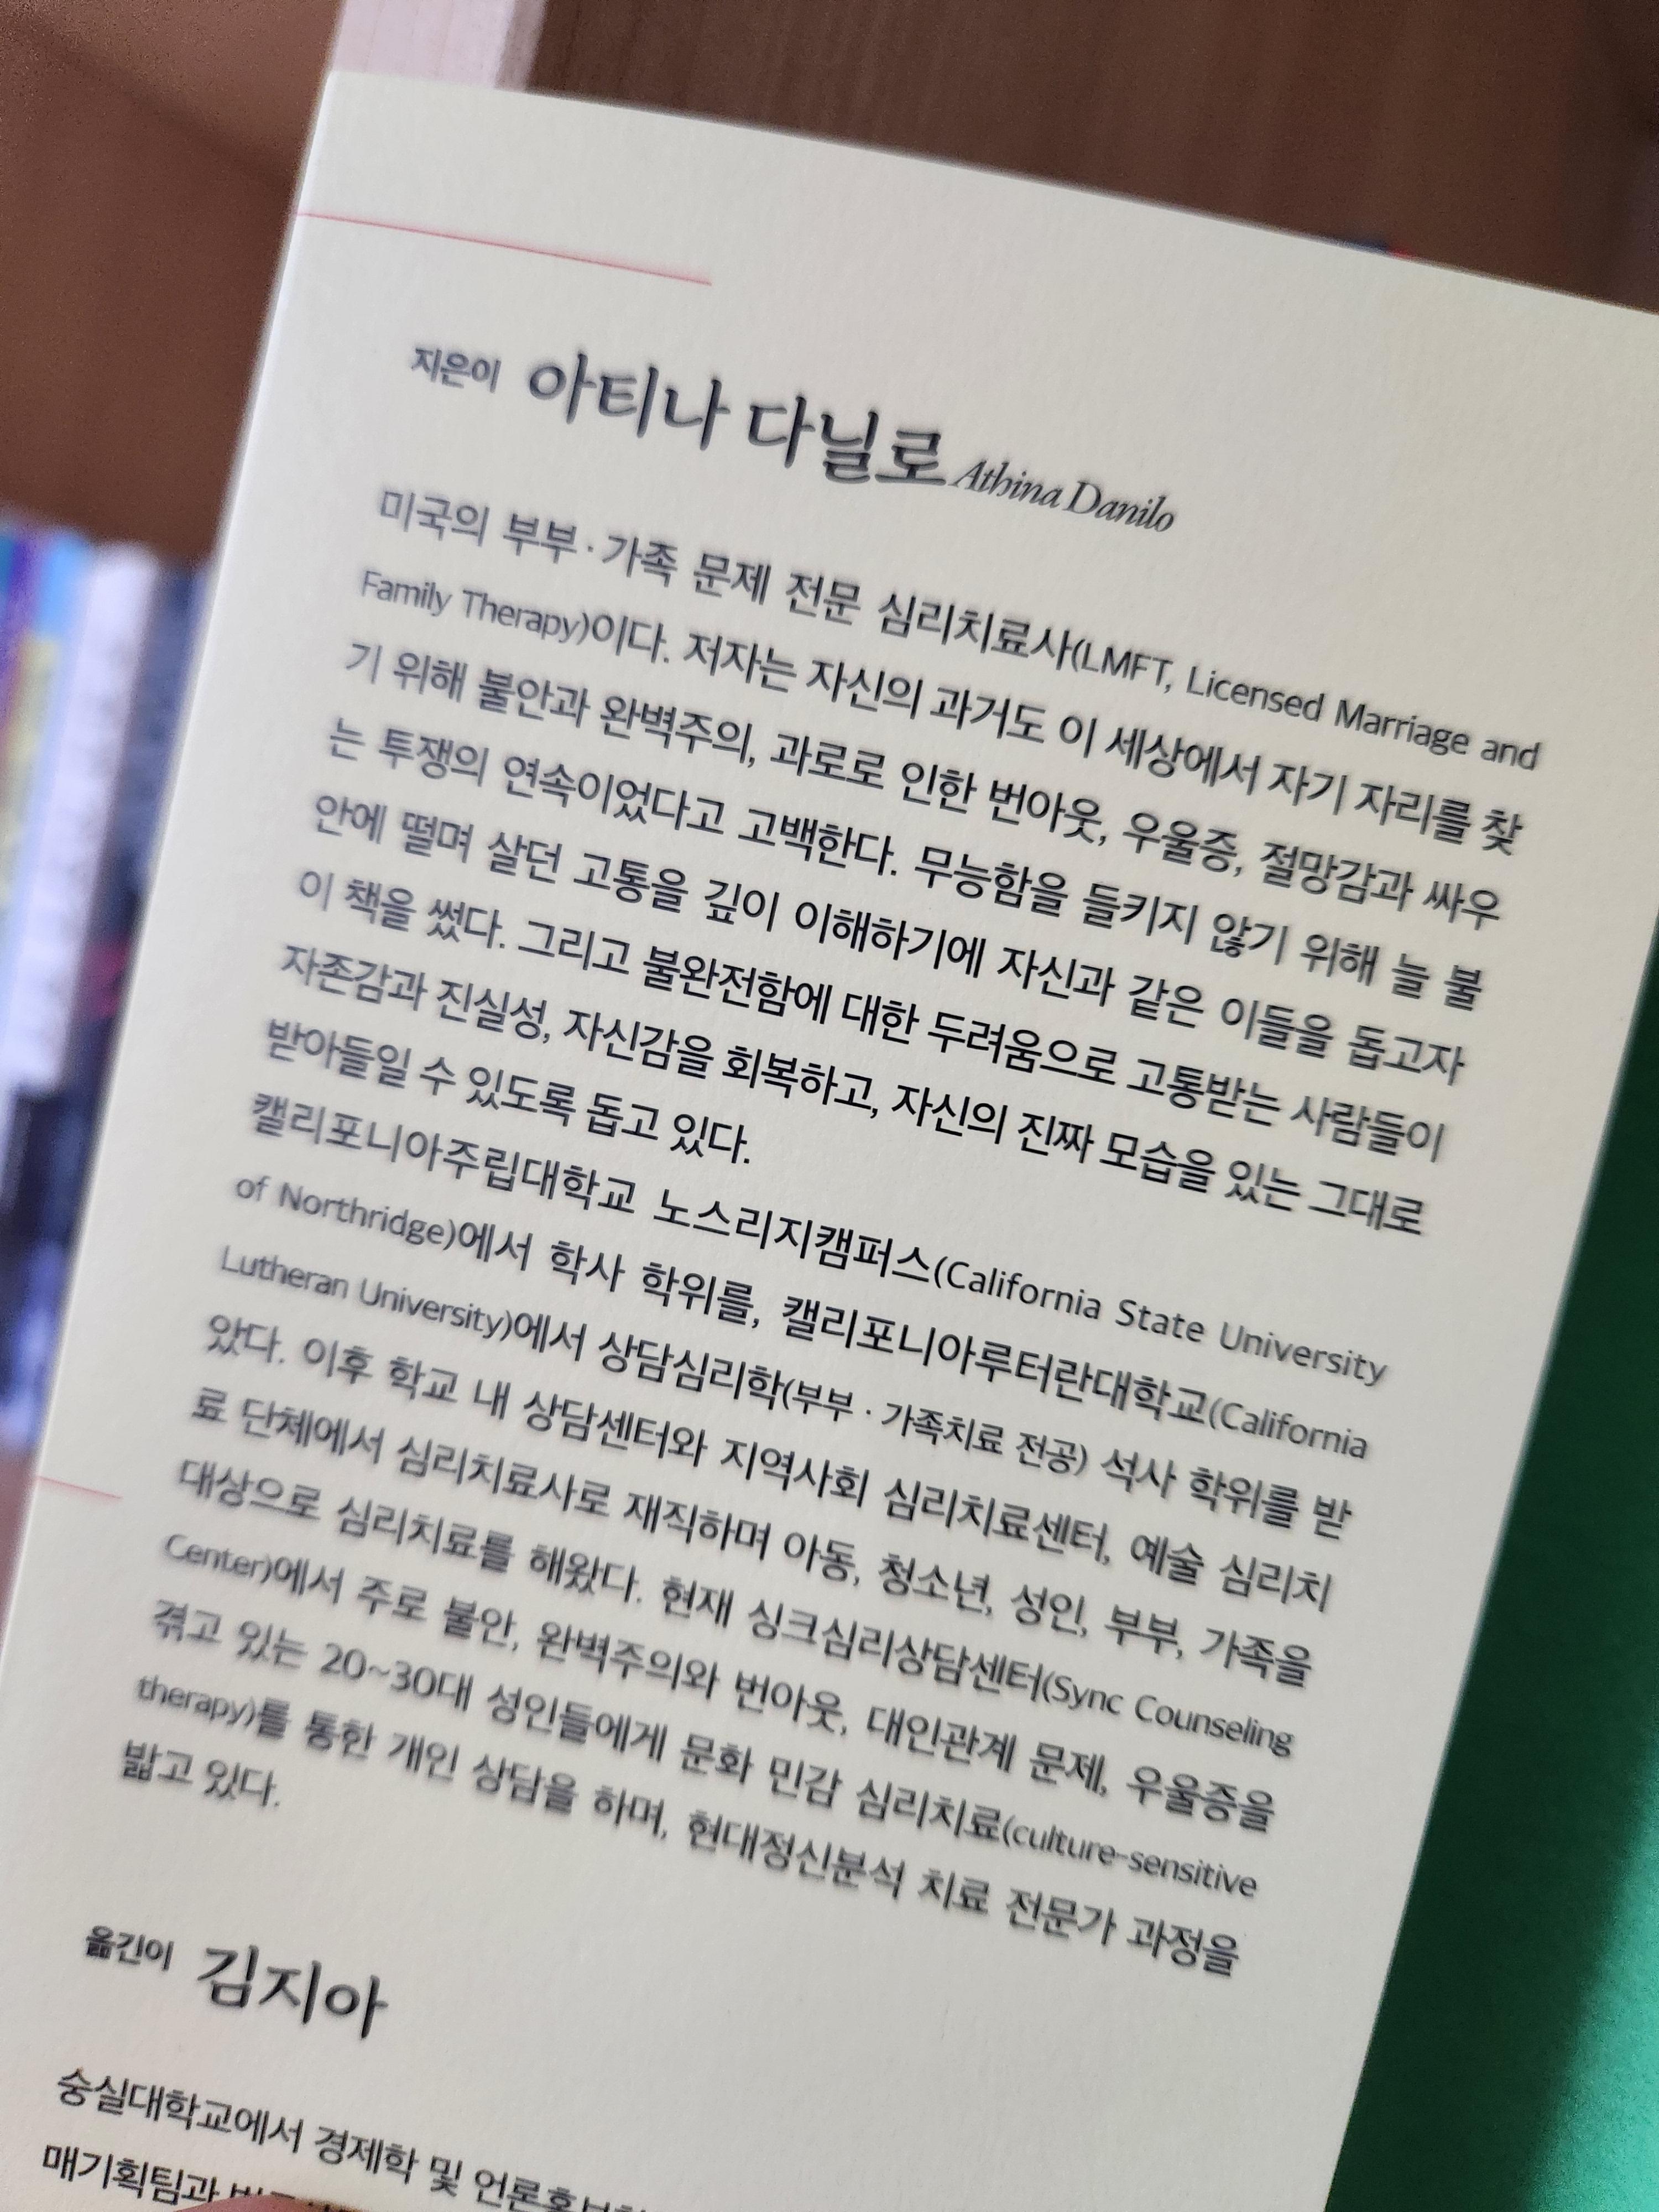 지은이 아티나 다닐로 Athina Danilo
미국의 부부·가족 문제 전문 심리치료사(LMFT, Licensed Marriage and
Family Therapy)이다. 저자는 자신의 과거도 이 세상에서 자기 자리를 찾
기 위해 불안과 완벽주의, 과로로 인한 번아웃, 우울증, 절망감과 싸우
는 투쟁의 연속이었다고 고백한다. 무능함을 들키지 않기 위해 늘 불
안에 떨며 살던 고통을 깊이 이해하기에 자신과 같은 이들을 돕고자
이 책을 썼다. 그리고 불완전함에 대한 두려움으로 고통받는 사람들이
자존감과 진실성, 자신감을 회복하고, 자신의 진짜 모습을 있는 그대로
받아들일 수 있도록 돕고 있다.
캘리포니아주립대학교 노스리지캠퍼스(California State University
of Northridge)에서 학사 학위를, 캘리포니아루터란대학교(California
Lutheran University)에서 상담심리학(부부·가족치료 전공) 석사 학위를 받
았다. 이후 학교 내 상담센터와 지역사회 심리치료센터, 예술 심리치
료 단체에서 심리치료사로 재직하며 아동, 청소년, 성인, 부부, 가족을
대상으로 심리치료를 해왔다. 현재 싱크심리상담센터(Sync Counseling
Center)에서 주로 불안, 완벽주의와 번아웃, 대인관계 문제, 우울증을
겪고 있는 20~30대 성인들에게 문화 민감 심리치료(culture-sensitive
therapy)를 통한 개인 상담을 하며, 현대정신분석 치료 전문가 과정을
밟고 있다.
옮긴이 김지아
숭실대학교에서 경제학 및
매기획팀과